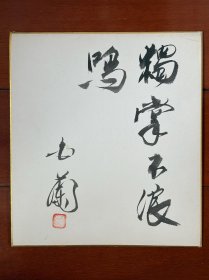 獨掌不浪
鳴
蘭